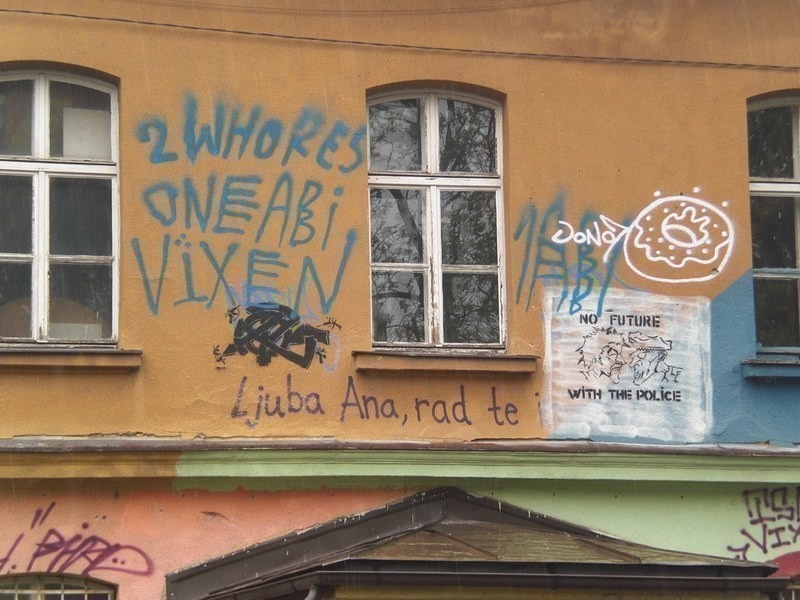 2 WHORES
ONE ABi
VIXEN
JONO
1 ABi
NO FUTURE
WITH THE POLICE
Ljuba Ana, rad te i